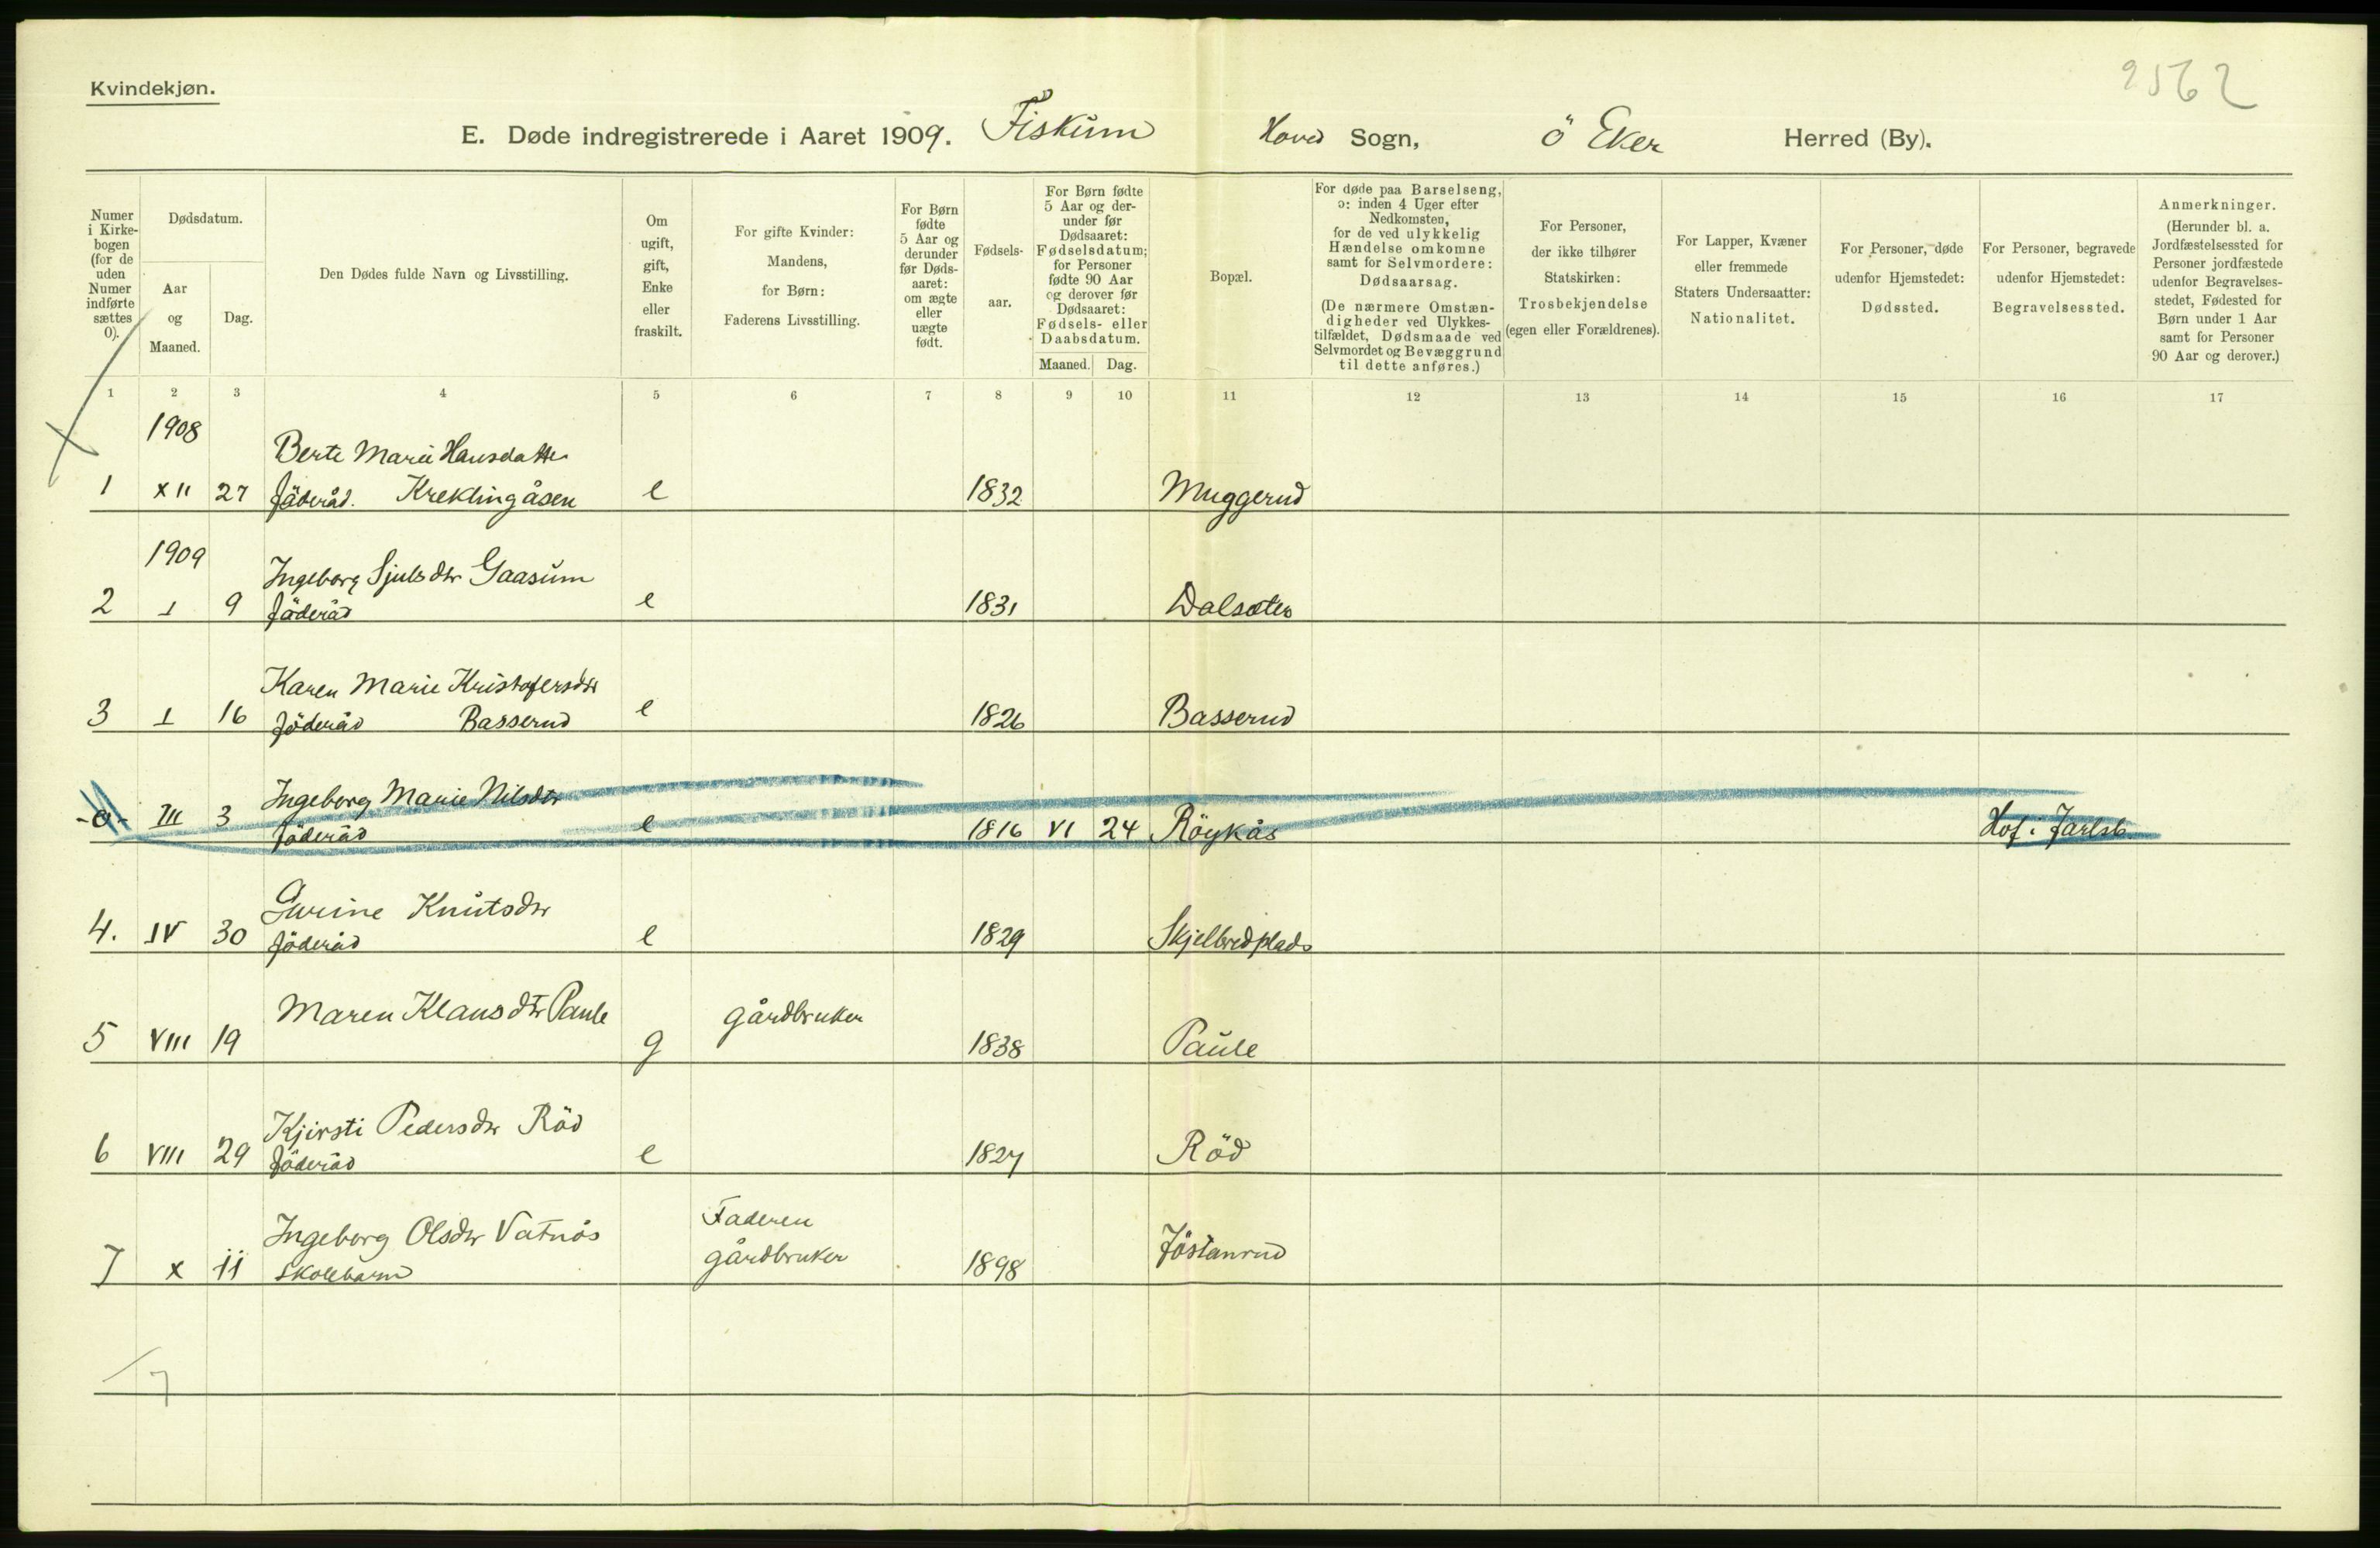 2562
Kvindekjøn.
E. Døde indregistrerede i Aaret 1909. Fiskum Hoved Sogn, Ö Eker Herred (By).
Numer i Kirkebogen (for de uden Numer indførte sættes 0).
Dødsdatum.
Aar og Maaned.
Dag.
Den Dødes fulde Navn og Livsstilling.
Om ugift, gift, Enke eller fraskilt.
For gifte Kvinder: Mandens, for Børn: Faderens Livsstilling.
For Børn fødte 5 Aar og derunder før Dødsaaret: om ægte eller uægte født.
Fødselsaar.
For Børn fødte 5 Aar og derunder før Dødsaaret: Fødselsdatum; for Personer fødte 90 Aar og derover før Dødsaaret: Fødsels- eller Daabsdatum.
Maaned. Dag.
Bopæl.
For døde paa Barselseng, ɔ: inden 4 Uger efter Nedkomsten, for de ved ulykkelig Hændelse omkomne samt for Selvmordere: Dødsaarsag.
(De nærmere Omstændigheder ved Ulykkestilfældet, Dødsmaade ved Selvmordet og Bevæggrund til dette anføres.)
For Personer, der ikke tilhører Statskirken: Trosbekjendelse (egen eller Forældrenes).
For Lapper, Kvæner eller fremmede Staters Undersaatter: Nationalitet.
For Personer, døde udenfor Hjemstedet: Dødssted.
For Personer, begravede udenfor Hjemstedet: Begravelsessted.
Anmerkninger.
(Herunder bl. a. Jordfæstelsessted for Personer jordfæstede udenfor Begravelsesstedet, Fødested for Børn under 1 Aar samt for Personer 90 Aar og derover.)
1 2 3 4 5 6 7 8 9 10 11 12 13 14 15 16 17
1908
Berte Marie Hansdatter
1 XII 27 föderåd. Kreklingåsen e 1832 Muggerud
1909
Ingeborg Sjulsdtr Gaasum
2 I 9 föderåd e 1831 Dalsæter
Karen Marie Kristofersdtr
3 I 16 föderåd Basserud e 1826 Basserud
Ingeborg Marie Nilsdtr
-0- III 3 föderåd e 1816 VI 24 Röykås Hof i Jarlsb.
Gurine Knutsdtr
4. IV 30 föderåd e 1829 Skjelbredplads
Maren Klausdtr Paule gårdbruker
5 VIII 19 g 1838 Paule
Kjirsti Pedersdtr Röd
6 VIII 29 föderåd e 1827 Röd
Ingeborg Olsdtr Vatnås Faderen
7 X 11 skolebarn gårdbruker 1898 Jöstanrud
7